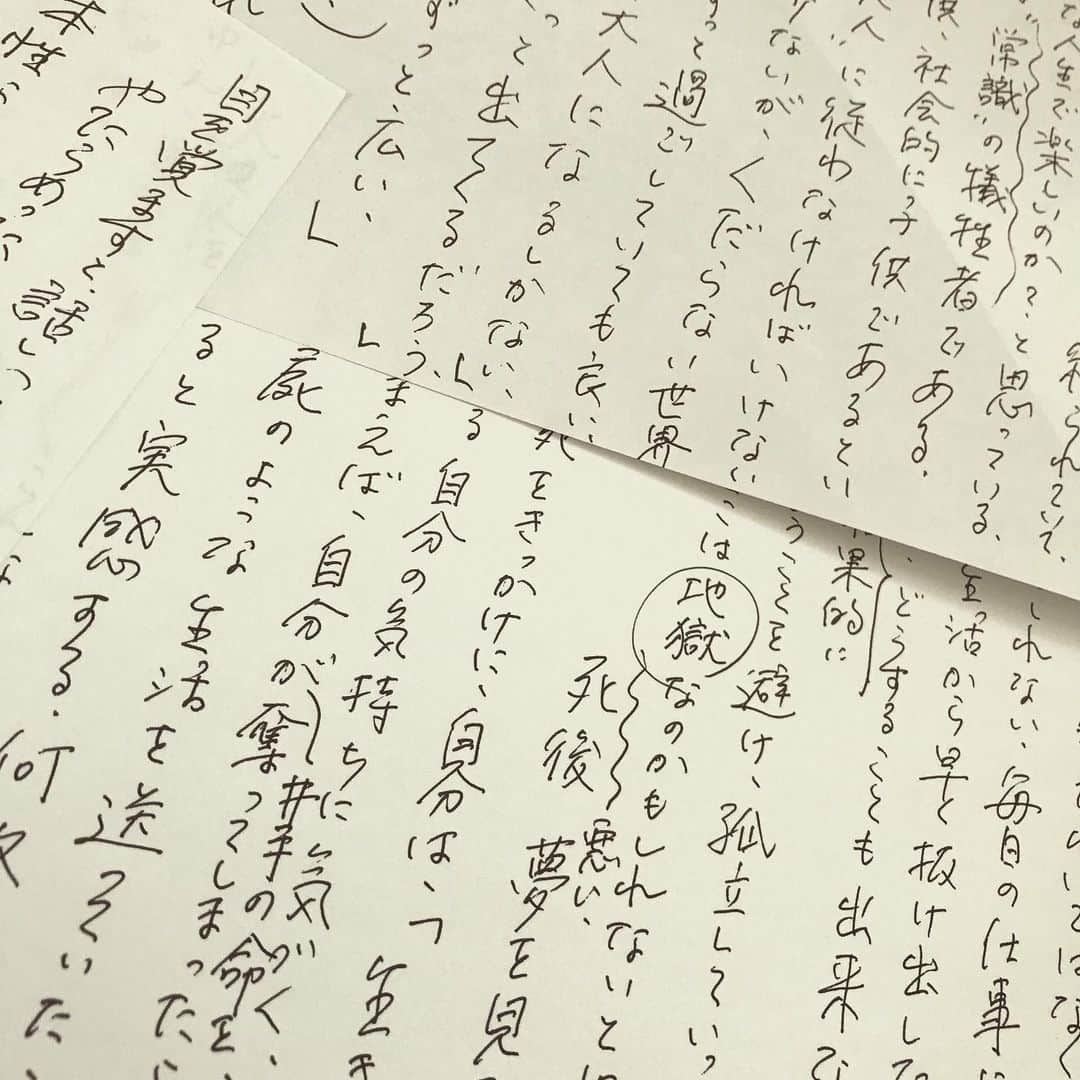 られていて、
な人生で楽しいのか？と思っている。
“常識”の犠牲者である。
供、社会的に子供であるとい
人”に従わなければいけない
ないが、くだらない世界
ずっと過ごしていても良い、
大人になるしかない、
っと出てくるだろう、
ずっと広い、
いてはなく
しれない、毎日の仕事に
生活から早く抜け出した
、どうすることも出来
果的に
うことを避け、孤立していっ
は地獄なのかもしれないと
死後悪い夢を見
死をきっかけに、自分は、
る自分の気持ちに気がく、生き
まえば、自分が奪ってしまった
相手の命を
屍のような生活を送っていた
ると実感する。何
目を覚ますと、話し
やたらめった
本性